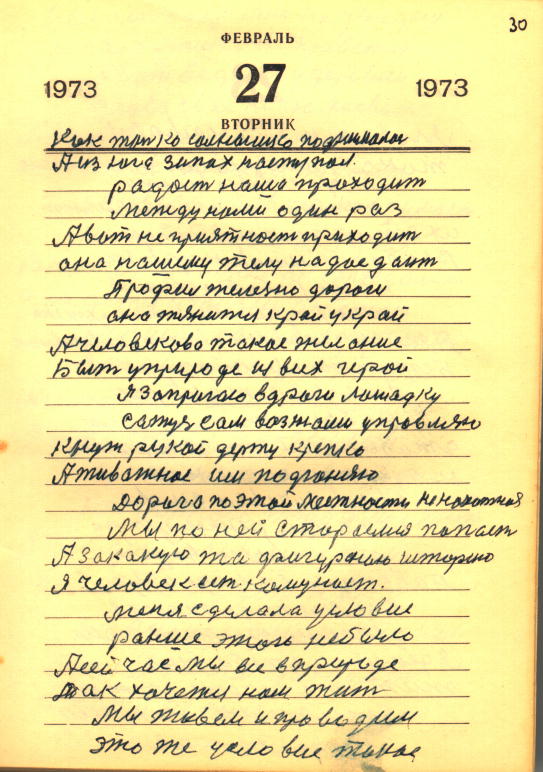 30
ФЕВРАЛЬ
1973 27 1973
ВТОРНИК
Как толко солнышко поднималос
А из юга запах наступал.
радост наша проходит
между нами один раз
А вот не приятност приходит
она нашему телу надоедаит
Профил железно дороги
она тянится край у край
А человекова такое желание
Быт у природе из всих герой
я запрягаю в дроги лошадку
сажус сам возжами управляю
кнут рукой держу крепко
Животное им подгоняю
дорога по этой местности не
мы по ней стараемся попаст
А за какую та фигурною шторою
я человек ест комунист.
меня сделала условие
ранше этого небыло
А сей час мы все в природе
Так хочется нам жит
мы живем и проводим
это же условие такое